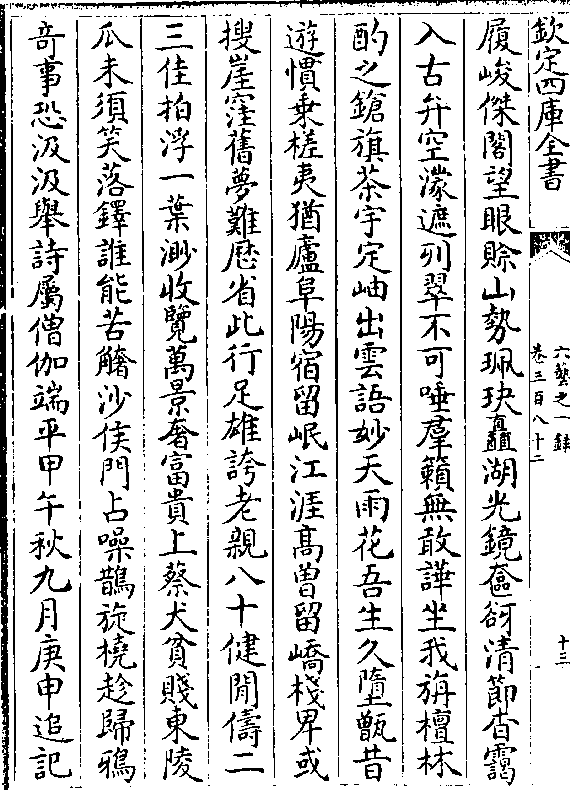 欽定四庫全書
六藝之一錄
卷三百八十二
十三
履峻傑閣望眼賒山勢珮玦矗湖光鏡奩谺清節杳靄
入古弁空濛遮列翠不可唾羣籟無敢譁坐我旃檀林
酌之鎗旗茶宇定岫出雲語妙天雨花吾生久墮甑昔
遊慣乗槎夷猶廬阜陽宿留岷江涯髙曽留嶠棧畀或
搜崖窪舊夢難歴省此行足雄誇老親八十健閒儔二
三佳拍浮一葉渺收覽萬景奢富貴上蔡犬貧賤東陵
瓜未須笑落鐸誰能苦艪沙侯門占噪鵲旋橈趁歸鴉
竒事恐汲汲舉詩屬僧伽端平甲午秋九月庚申追記